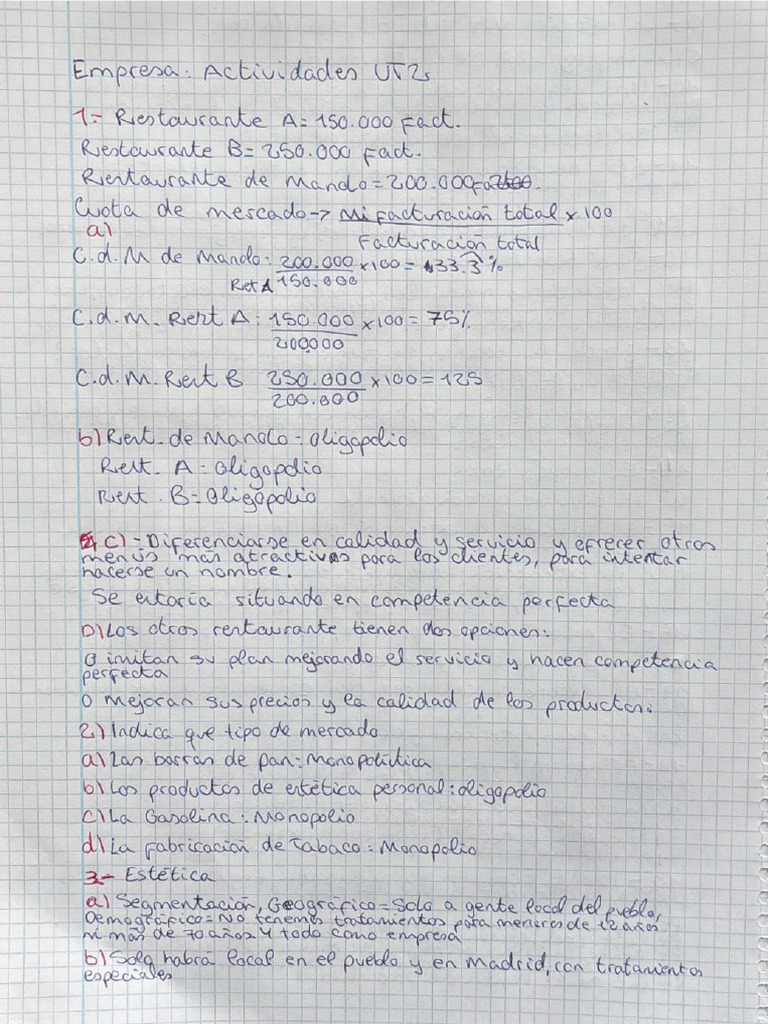 Empresa: Actividades UT2s
1- Restaurante A = 150.000 Fact.
Restaurante B = 250.000 Fact.
Restaurante de Manolo = 200.000 Fa
Cuota de mercado → Mi facturación total x 100
Facturación total
a)
C.d.M de Manolo: 200.000 x 100 = 133.3 %
Rest A 150.000
C.d.m. Rest A: 150.000 x 100 = 75%
200.000
C.d.M. Rest B 250.000 x 100 = 125
200.000
b) Rest. de Manolo = Oligopolio
Rest. A = Oligopolio
Rest. B = Oligopolio
c) - Diferenciarse en calidad y servicio y efrecer otros
menús más atractivos para los clientes, para intentar
hacerse un nombre.
Se estaría situando en competencia perfecta
D) Los otros restaurante tienen dos opciones:
O imitan su plan mejorando el servicio y hacen competencia
perfecta
O mejoran sus precios y la calidad de los productos.
2) Indica que tipo de mercado
a) Las barras de pan: Monopolística
b) Los productos de estética personal: oligopolio
c) La Gasolina: Monopolio
d) La fabricación de Tabaco = Monopolio
3- Estética
a) Segmentación, Geográfico = Solo a gente local del pueblo,
Demográfico = No tenemos tratamientos para menores de 12 años
ni más de 70 años y todo como empresa
b) Solo habrá local en el pueblo y en Madrid, con tratamientos
especiales